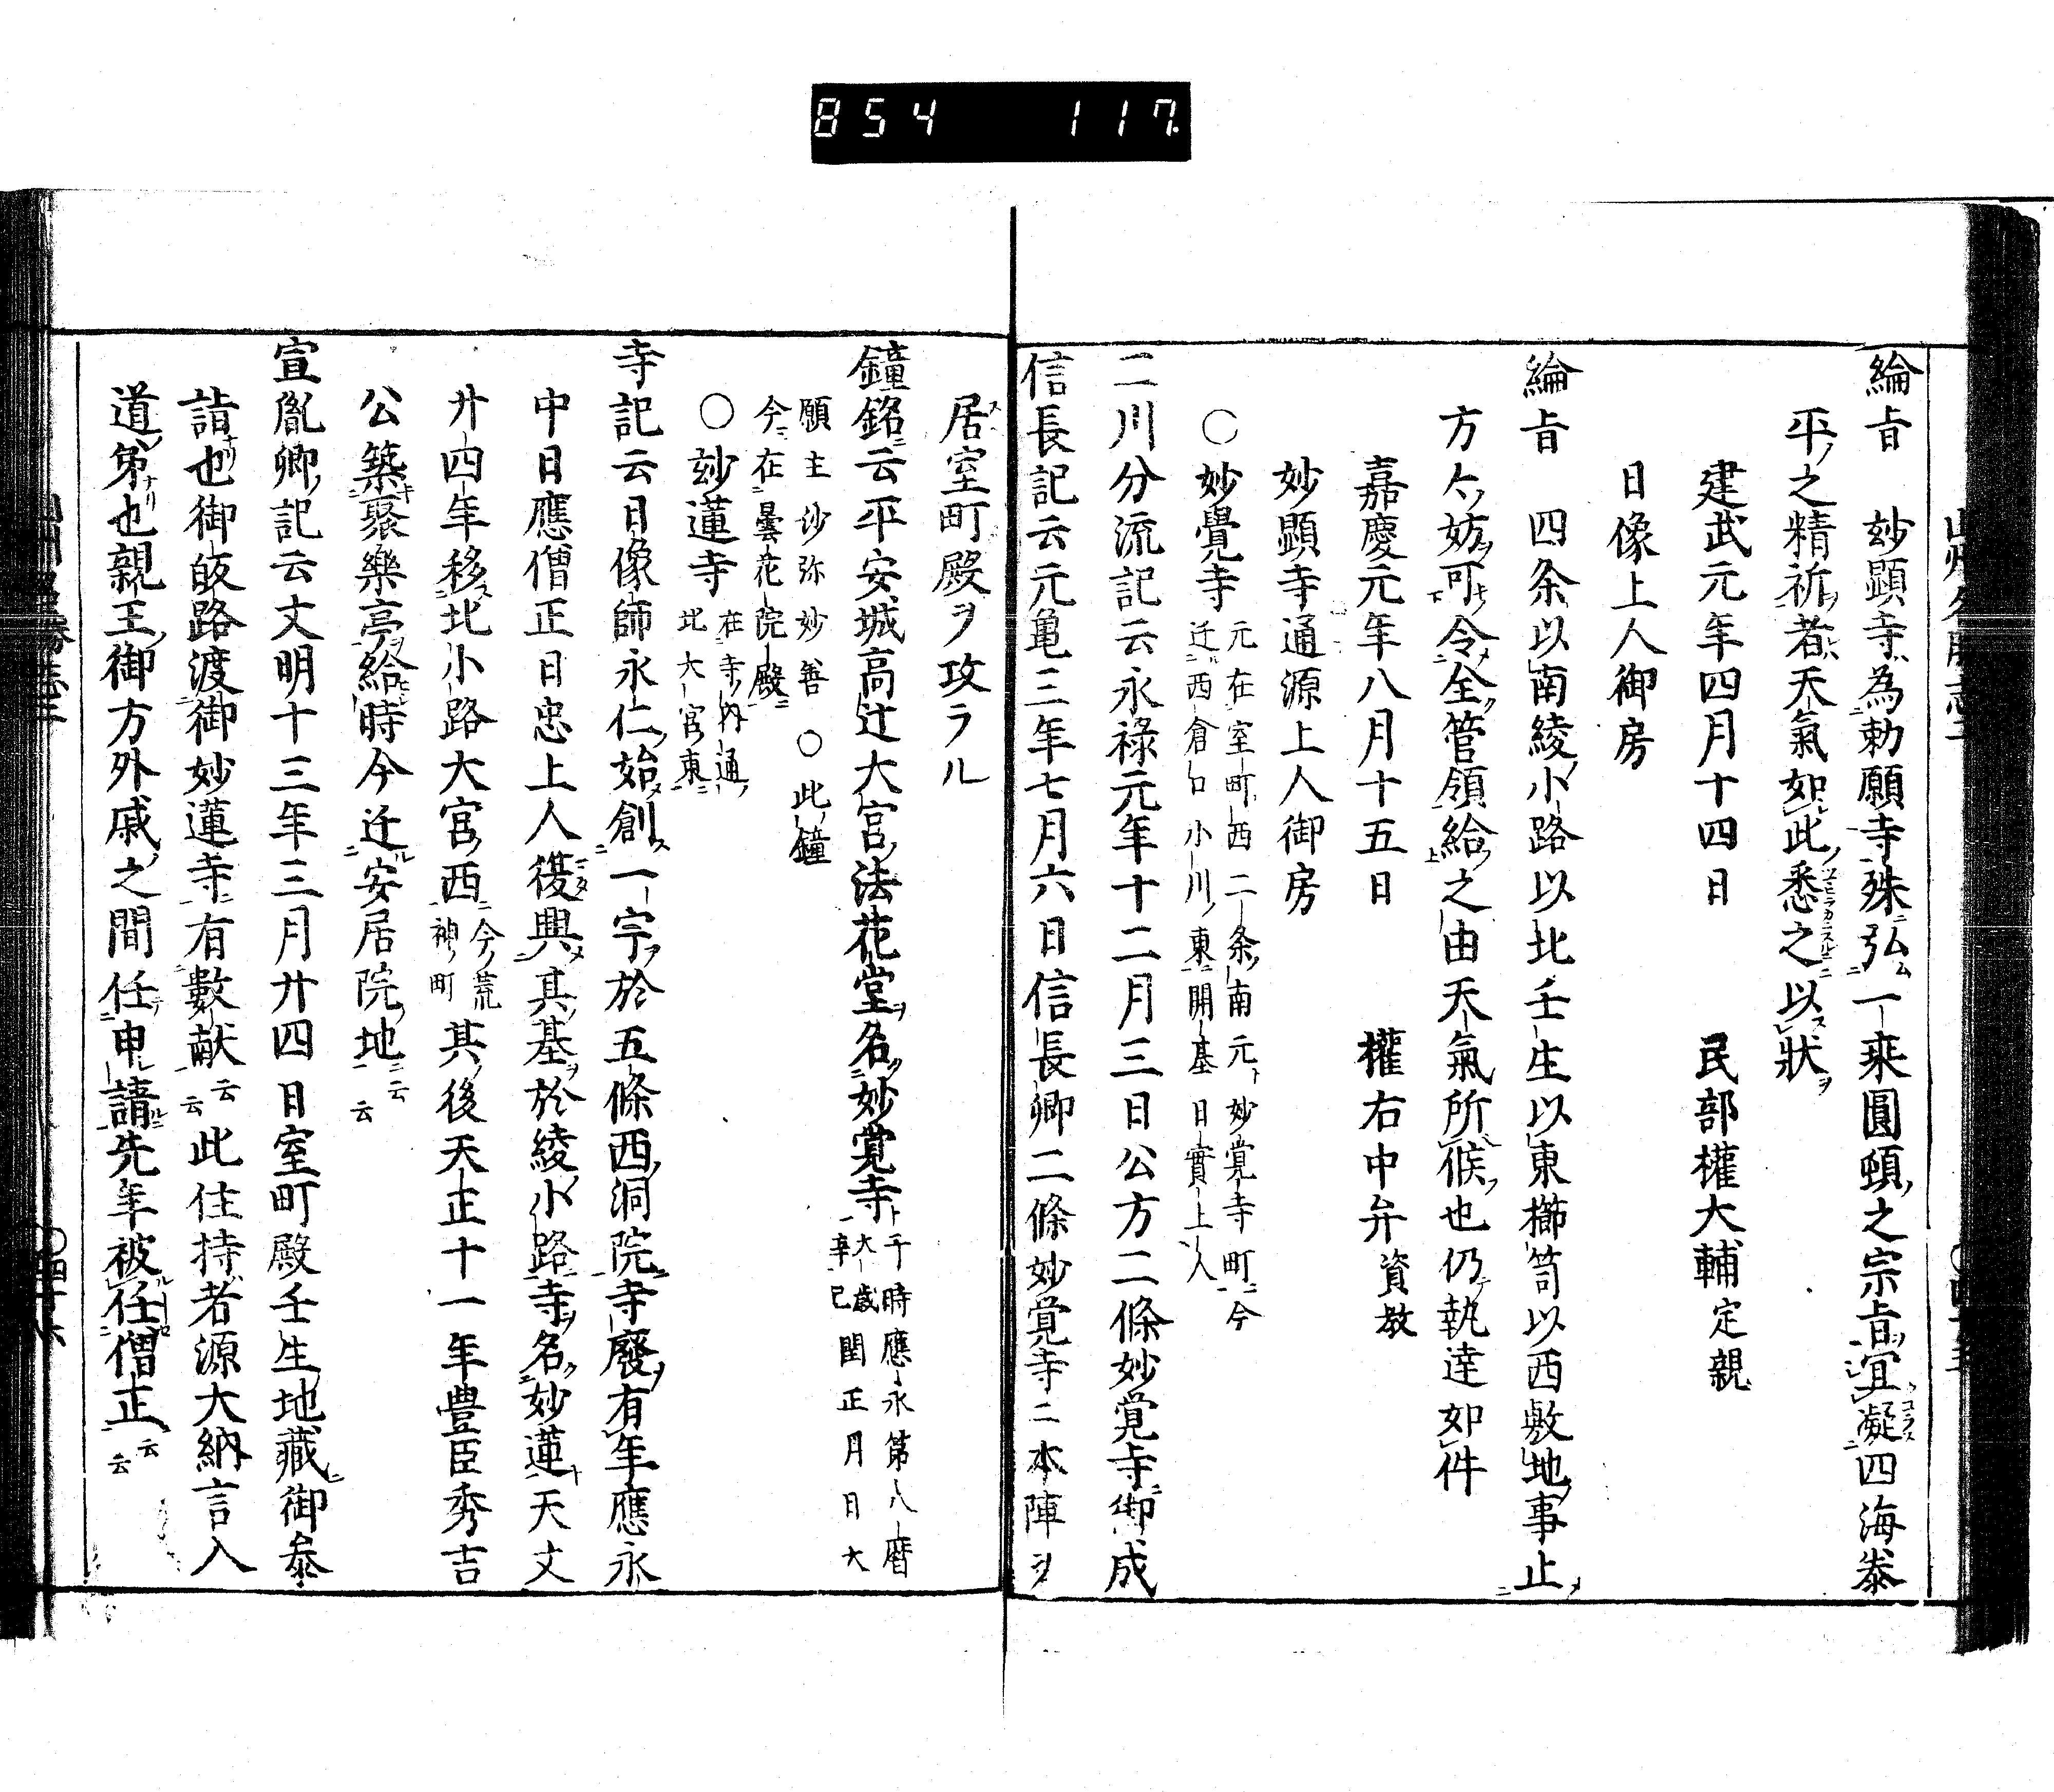 854 117.
綸旨 妙顕寺為勅願寺殊弘一乗圓頓之宗旨宜凝四海泰
平之精祈者天氣如此悉之以狀
建武元年四月十四日 民部權大輔定親
日像上人御房
綸旨 四条以南綾小路以北壬生以東櫛笥以西敷地事止
方々妨可令全管領給之由天氣所候也仍執達如件
嘉慶元年八月十五日 權右中弁資教
妙顕寺通源上人御房
○妙覺寺 元在室町西二条南元妙覚寺町今
迁西倉口小川東開基日實上人
二川分流記云永祿元年十二月三日公方二條妙覚寺御成
信長記云元亀三年七月六日信長卿二條妙覚寺ニ本陣ヲ
居室町殿ヲ攻ラル
鐘銘云平安城高辻大宮法花堂名妙覚寺 于時應永第八暦
大歳辛巳閏正月日大
願主沙弥妙善 ○此鐘
今在曇花院殿
○妙蓮寺 在寺内通
北大宮東
寺記云日像師永仁始創一宇於五條西洞院寺廢有年應永
中日應僧正日忠上人復興其基於綾小路寺名妙蓮天文
廾四年移北小路大宮西 今荒
神町 其後天正十一年豊臣秀吉
公築聚樂亭給時今迁安居院地云云
宣胤卿記云文明十三年三月廾四日室町殿壬生地藏御参
詣也御皈路渡御妙蓮寺有數献云云此住持者源大納言入
道弟也親王御方外戚之間任申請先年被任僧正云云